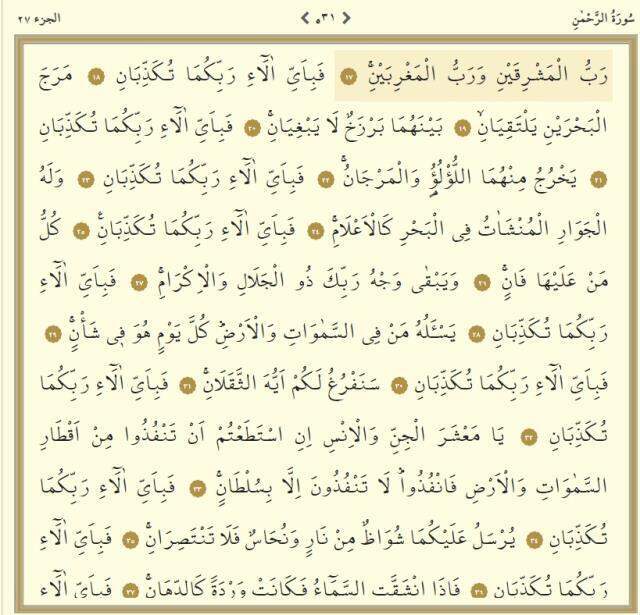 سُورَةُ الرَّحْمٰنِ ٥٣١ الجزء ٢٧
رَبُّ الْمَشْرِقَيْنِ وَرَبُّ الْمَغْرِبَيْنِۚ ١٧ فَبِاَيِّ اٰلَٓاءِ رَبِّكُمَا تُكَذِّبَانِ ١٨ مَرَجَ
الْبَحْرَيْنِ يَلْتَقِيَانِۙ ١٩ بَيْنَهُمَا بَرْزَخٌ لَا يَبْغِيَانِۚ ٢٠ فَبِاَيِّ اٰلَٓاءِ رَبِّكُمَا تُكَذِّبَانِ
٢١ يَخْرُجُ مِنْهُمَا اللُّؤْلُؤُ وَالْمَرْجَانُۚ ٢٢ فَبِاَيِّ اٰلَٓاءِ رَبِّكُمَا تُكَذِّبَانِ ٢٣ وَلَهُ
الْجَوَارِ الْمُنْشَاٰتُ فِى الْبَحْرِ كَالْاَعْلَامِۚ ٢٤ فَبِاَيِّ اٰلَٓاءِ رَبِّكُمَا تُكَذِّبَانِ۟ ٢٥ كُلُّ
مَنْ عَلَيْهَا فَانٍۚ ٢٦ وَيَبْقٰى وَجْهُ رَبِّكَ ذُو الْجَلَالِ وَالْاِكْرَامِۚ ٢٧ فَبِاَيِّ اٰلَٓاءِ
رَبِّكُمَا تُكَذِّبَانِ ٢٨ يَسْـَٔلُهُ مَنْ فِى السَّمٰوَاتِ وَالْاَرْضِۜ كُلَّ يَوْمٍ هُوَ فِى شَأْنٍۚ ٢٩
فَبِاَيِّ اٰلَٓاءِ رَبِّكُمَا تُكَذِّبَانِ ٣٠ سَنَفْرُغُ لَكُمْ اَيُّهَ الثَّقَلَانِۚ ٣١ فَبِاَيِّ اٰلَٓاءِ رَبِّكُمَا
تُكَذِّبَانِ ٣٢ يَا مَعْشَرَ الْجِنِّ وَالْاِنْسِ اِنِ اسْتَطَعْتُمْ اَنْ تَنْفُذُوا مِنْ اَقْطَارِ
السَّمٰوَاتِ وَالْاَرْضِ فَانْفُذُواۜ لَا تَنْفُذُونَ اِلَّا بِسُلْطَانٍۚ ٣٣ فَبِاَيِّ اٰلَٓاءِ رَبِّكُمَا
تُكَذِّبَانِ ٣٤ يُرْسَلُ عَلَيْكُمَا شُوَاظٌ مِنْ نَارٍ وَنُحَاسٌ فَلَا تَنْتَصِرَانِۚ ٣٥ فَبِاَيِّ اٰلَٓاءِ
رَبِّكُمَا تُكَذِّبَانِ ٣٦ فَاِذَا انْشَقَّتِ السَّمَٓاءُ فَكَانَتْ وَرْدَةً كَالدِّهَانِۚ ٣٧ فَبِاَيِّ اٰلَٓاءِ